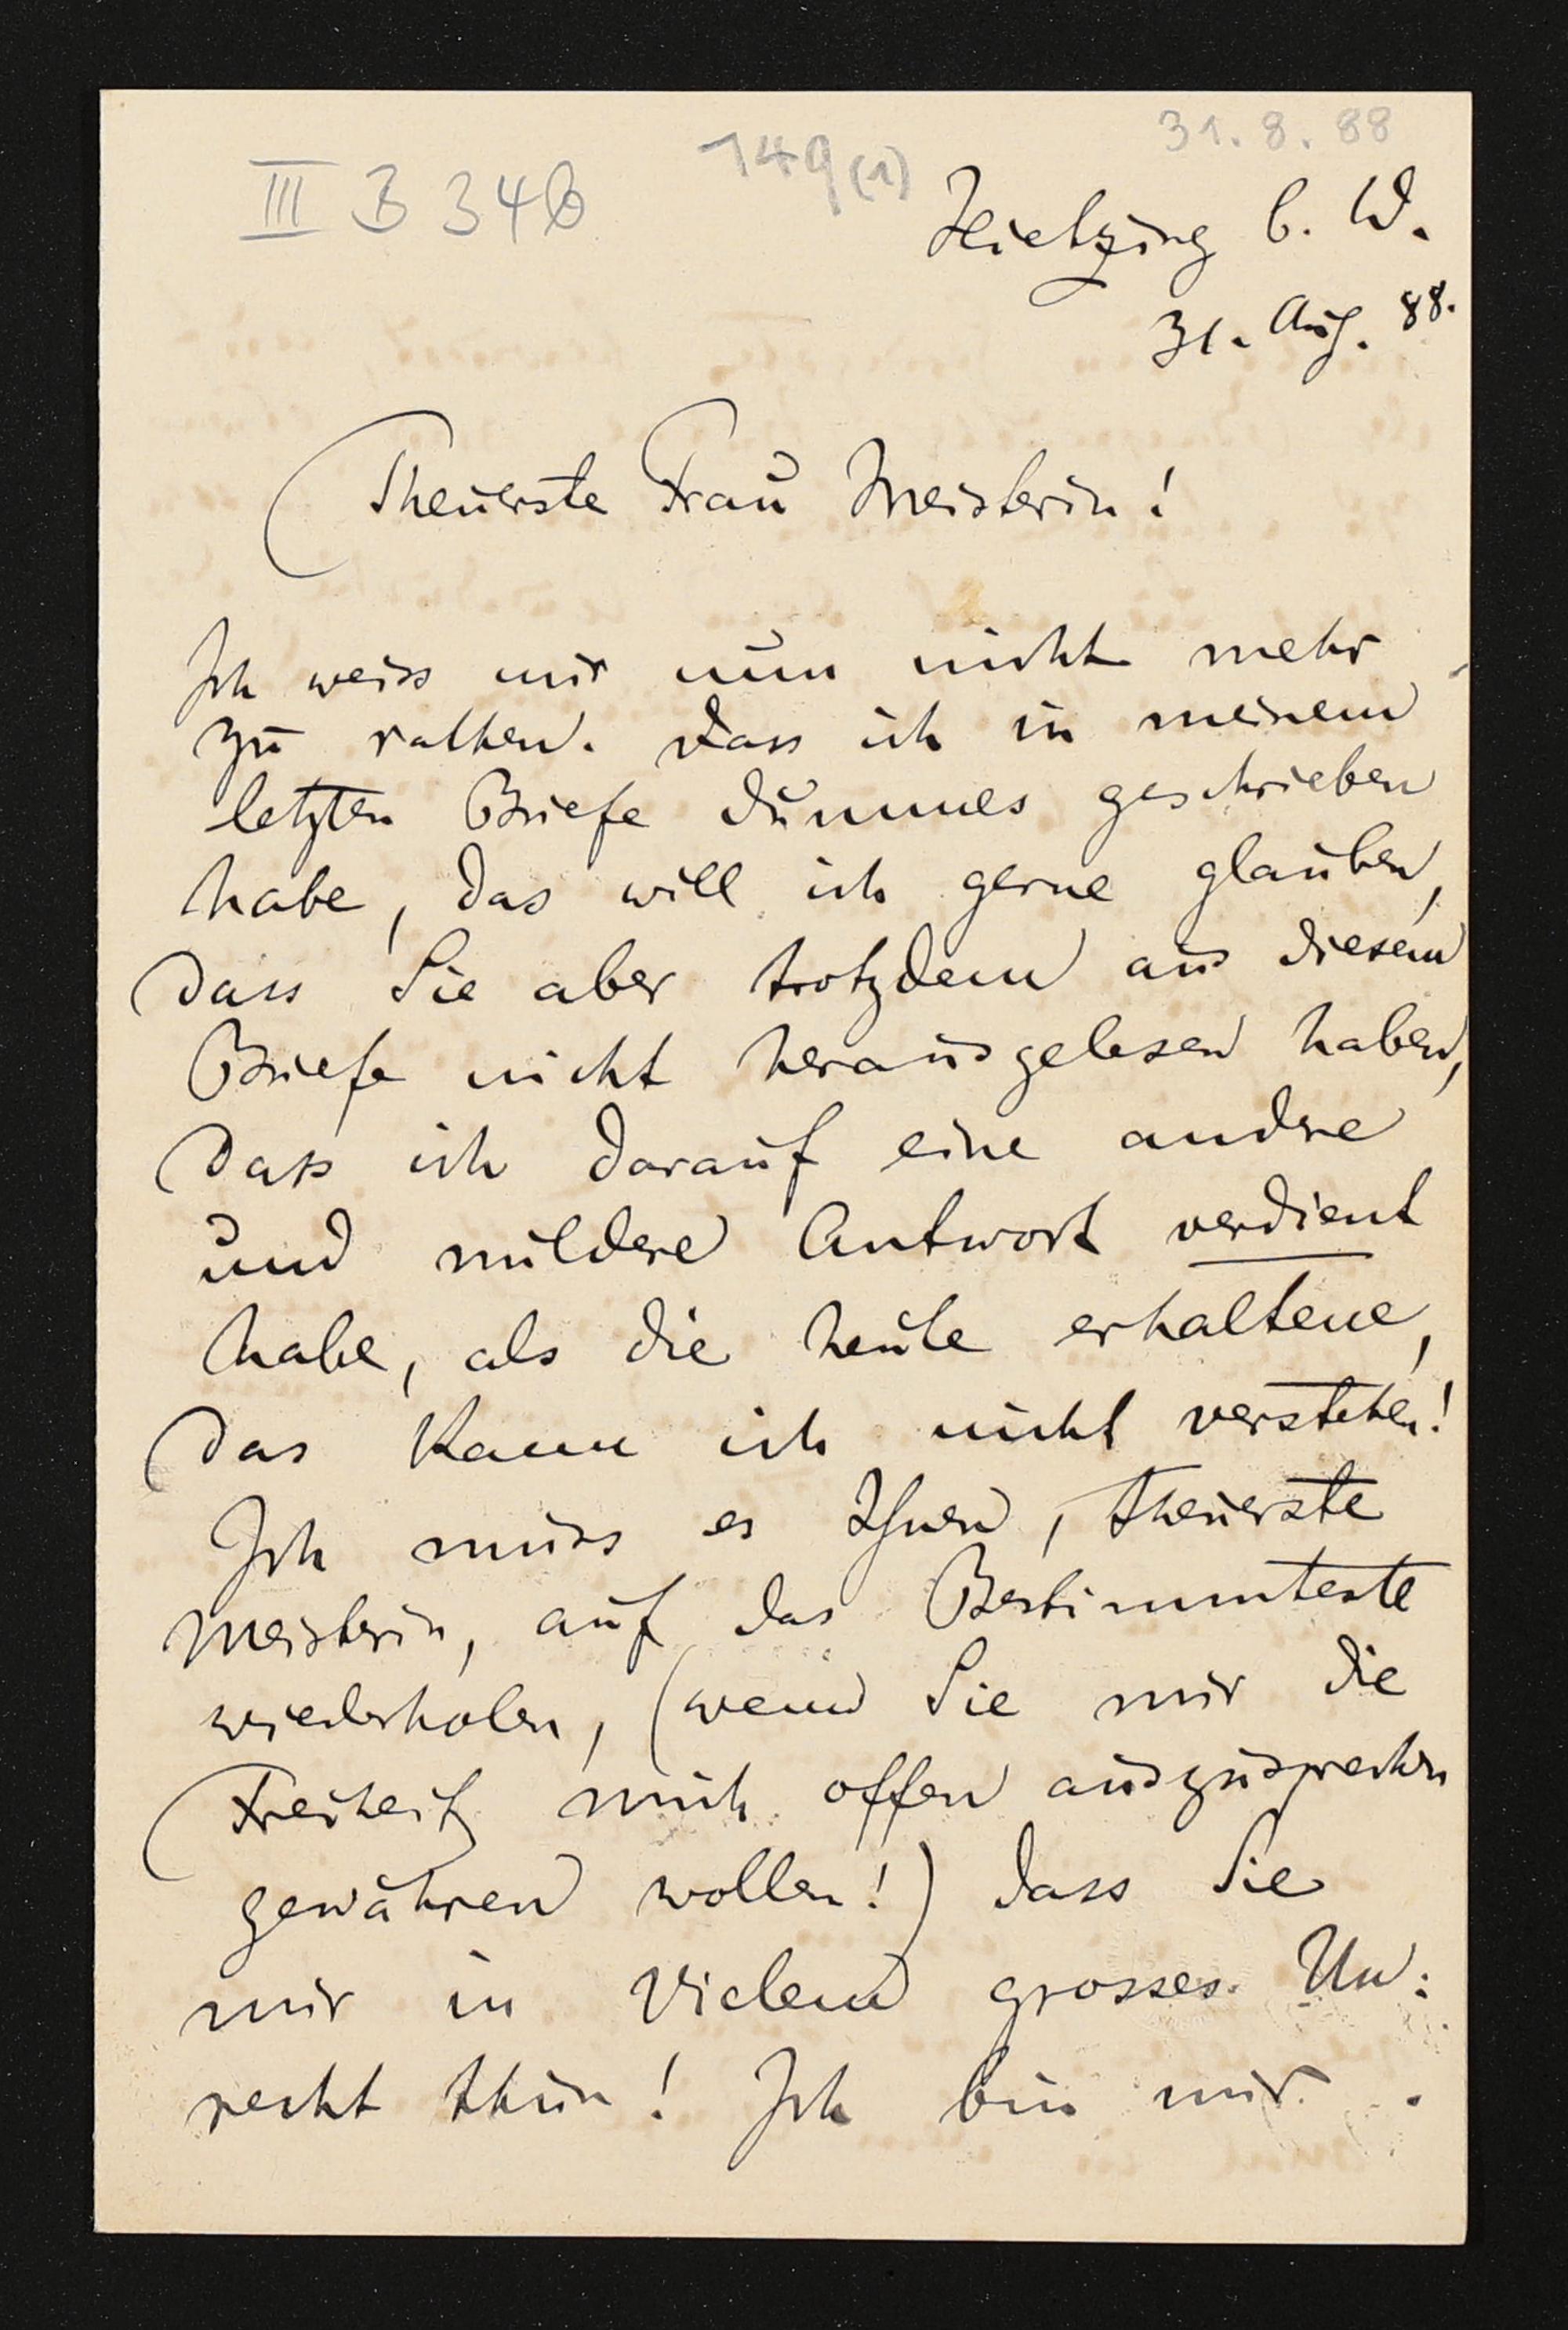 31. 8. 88
149(1)
III B 34b
Hietzing b. W.
31. Aug. 88.
Theuerste Frau Meisterin!
Ich weiss mir nun nicht mehr
zu rathen. Dass ich in meinem
letzten Briefe dummes geschrieben
habe, das will ich gerne glauben,
dass Sie aber trotzdem aus diesem
Briefe nicht herausgelesen haben,
dass ich darauf eine andre
und mildere Antwort verdient
habe, als die heute erhaltene,
das kann ich nicht verstehen!
Ich muss es Ihnen, theuerste
Meisterin, auf das Bestimmteste
wiederholen, (wenn Sie mir die
Freiheit mich offen auszusprechen
gewähren wollen!) dass Sie
mir in Vielem grosses Un:
recht thun! Ich bin mir